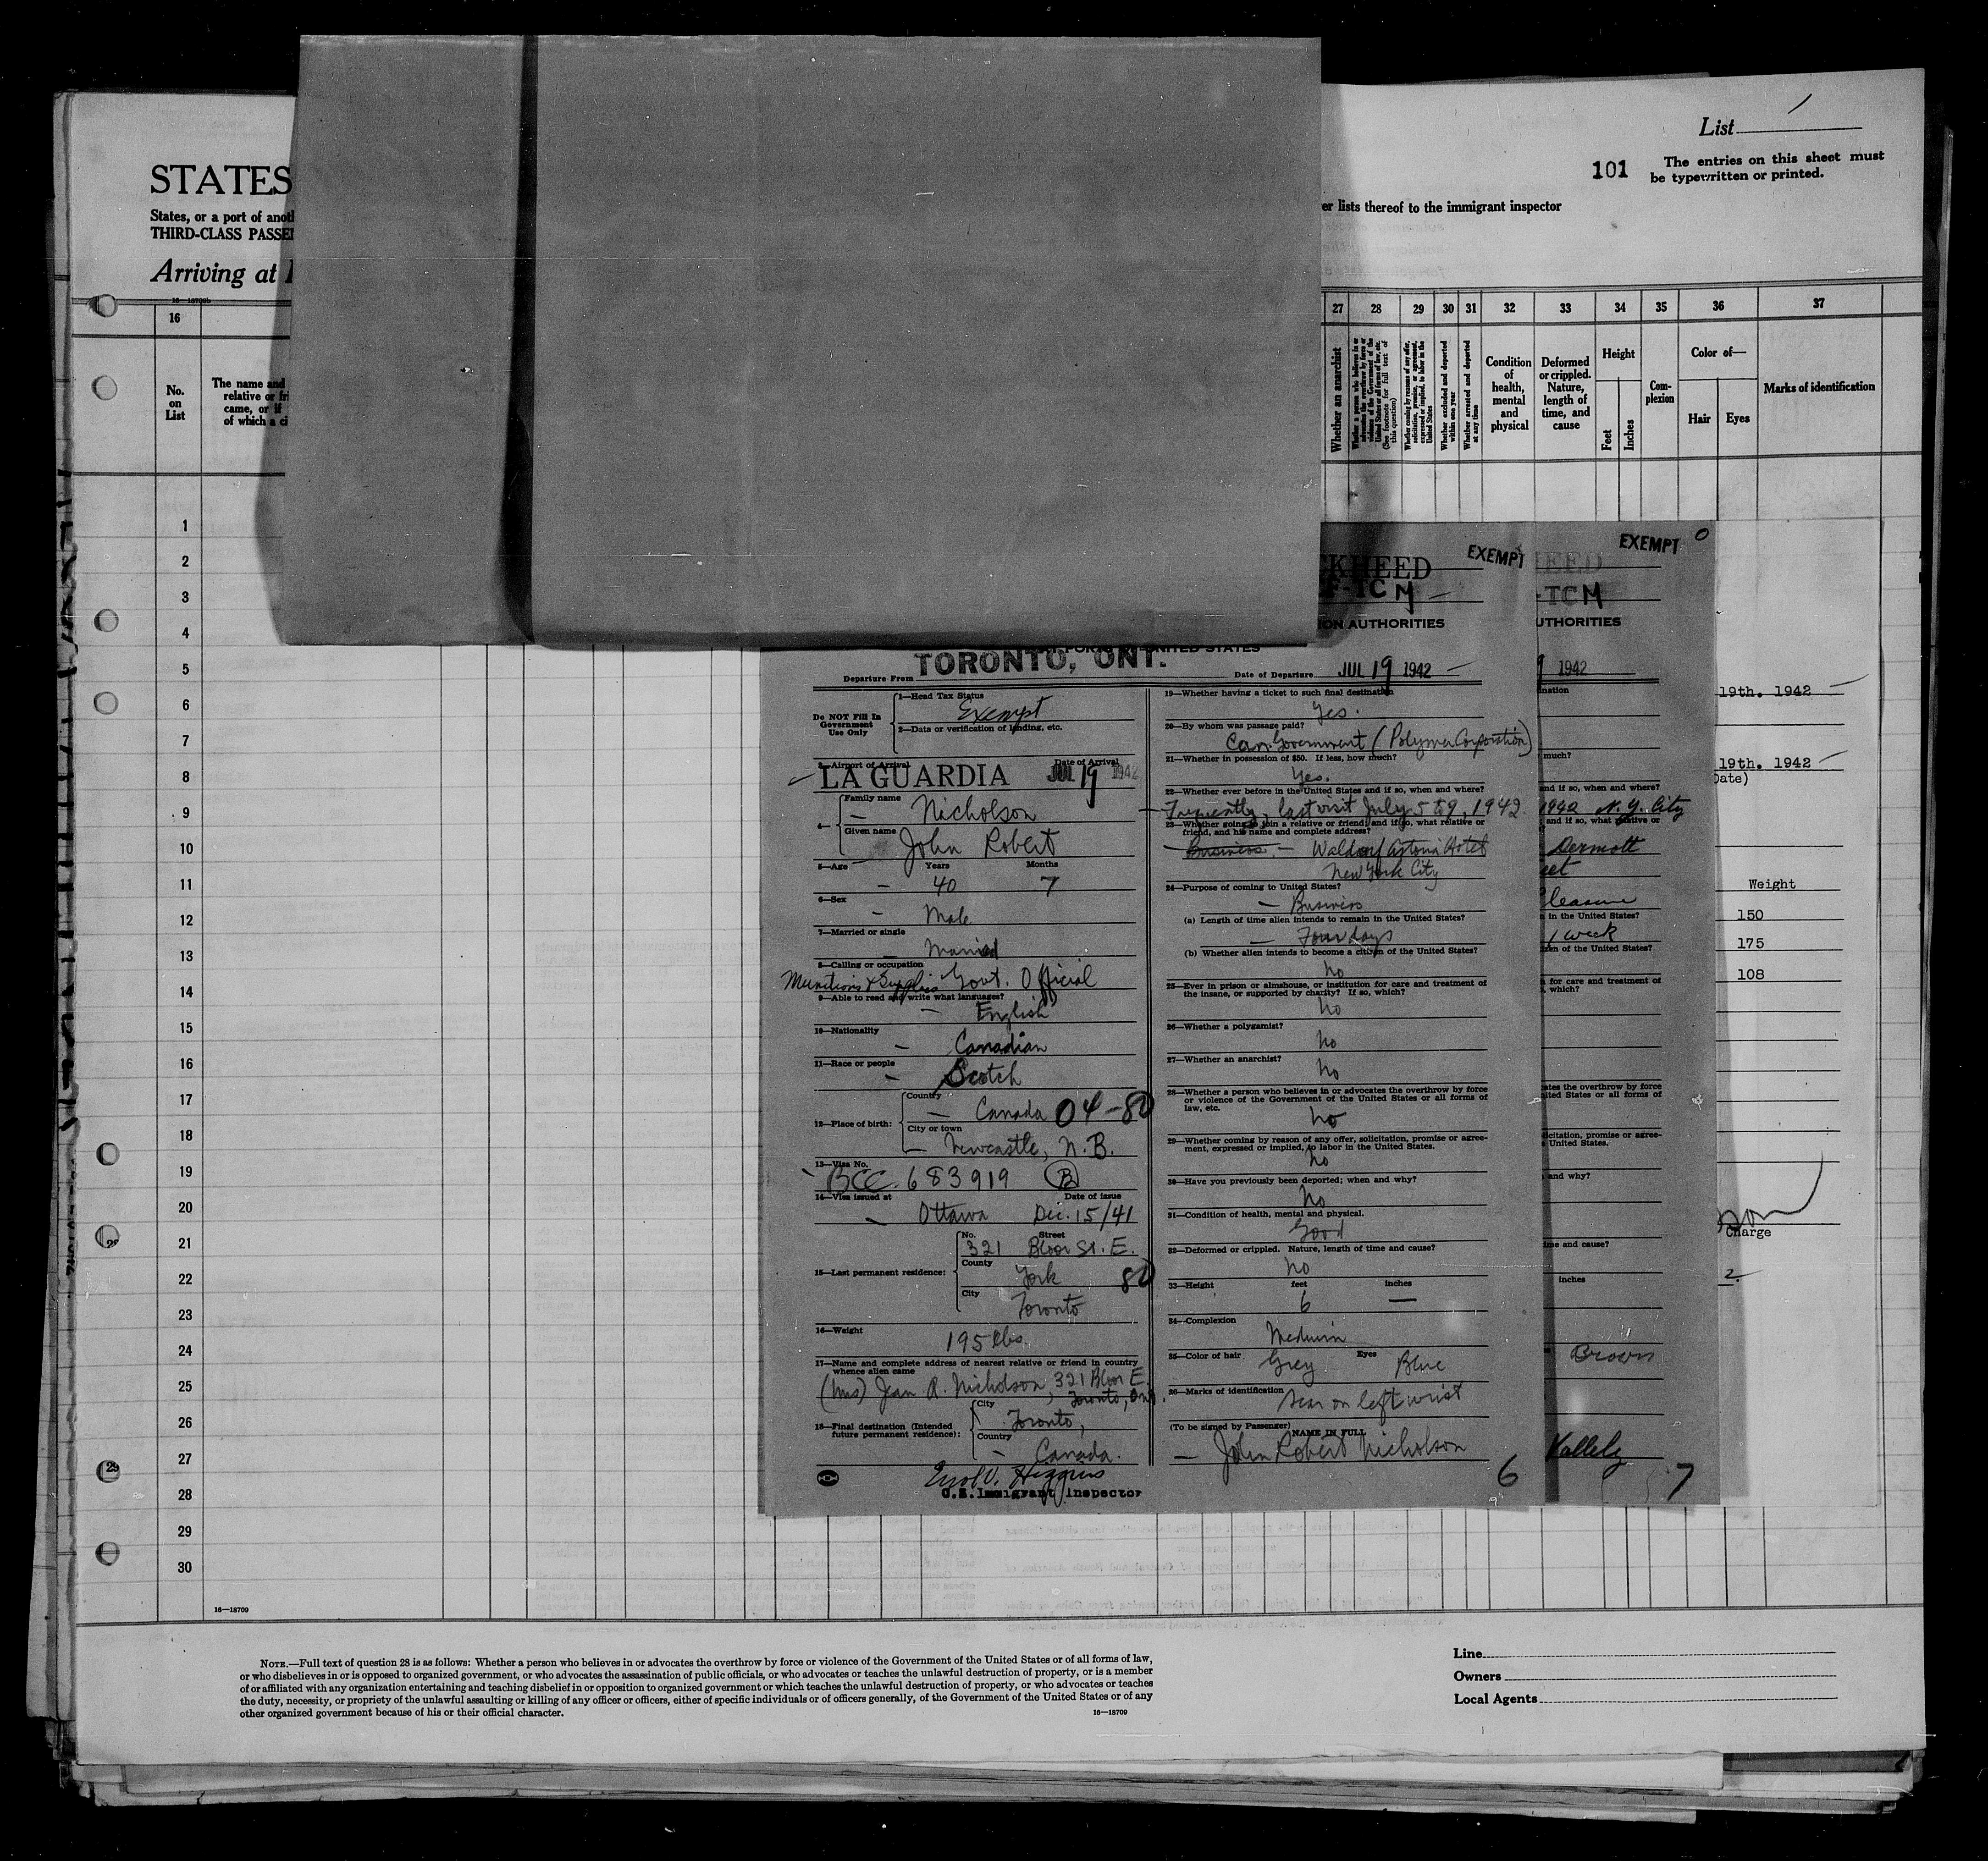 List 1
101 The entries on this sheet must
be typewritten or printed.
STATES
States, or a port of anot
THIRD-CLASS PASSE
er lists thereof to the immigrant inspector
Arriving at
16—18709b
16 27 28 29 30 31 32 33 34 35 36 37
No.
on
List
The name and
relative or fri
came, or if
of which a ci
Whether an anarchist
(See footnote for full text of
this question)
Whether excluded and deported
within one year
Whether arrested and deported
at any time
Condition
of
health,
mental
and
physical
Deformed
or crippled.
Nature,
length of
time, and
cause
Height
Feet
Inches
Com-
plexion
Color of—
Hair
Eyes
Marks of identification
1
2
3
4
5
6
7
8
9
10
11
12
13
14
15
16
17
18
19
20
21
22
23
24
25
26
27
28
29
30
KHEED
EXEMPT
F-TCM
ION AUTHORITIES
UNITED STATES
Departure From TORONTO, ONT.
Date of Departure JUL 19 1942
Do NOT Fill In
Government
Use Only
1—Head Tax Status
Exempt
2—Data or verification of landing, etc.
3—Airport of Arrival Date of Arrival
LA GUARDIA JUL 19 1942
4—
Family name
Nicholson
Given name
John Robert
5—Age Years Months
40 7
6—Sex
Male
7—Married or single
Married
8—Calling or occupation
Munitions & Supplies Govt. Official
9—Able to read and write what languages?
English
10—Nationality
Canadian
11—Race or people
Scotch
12—Place of birth:
Country
Canada 04-80
City or town
Newcastle, N.B.
13—Visa No.
BCC. 683919 B
14—Visa issued at Date of issue
Ottawa Dec. 15/41
15—Last permanent residence:
No. Street
321 Bloor St. E.
County
York 80
City
Toronto
16—Weight
195 lbs.
17—Name and complete address of nearest relative or friend in country
whence alien came
(Mrs) Jean R. Nicholson, 321 Bloor E.
Toronto, Ont.
18—Final destination (Intended
future permanent residence):
City
Toronto,
Country
Canada.
Higgins
U.S. Immigrant Inspector
19—Whether having a ticket to such final destination
Yes.
20—By whom was passage paid?
Can. Government (Polymer Corporation)
21—Whether in possession of $50. If less, how much?
Yes.
22—Whether ever before in the United States and if so, when and where?
Frequently, last visit July 5 to 9, 1942.
23—Whether going to join a relative or friend and if so, what relative or
friend, and his name and complete address?
Business — Waldorf Astoria Hotel
New York City
24—Purpose of coming to United States?
— Business
(a) Length of time alien intends to remain in the United States?
— Four days
(b) Whether alien intends to become a citizen of the United States?
No
25—Ever in prison or almshouse, or institution for care and treatment of
the insane, or supported by charity? If so, which?
No
26—Whether a polygamist?
No
27—Whether an anarchist?
No
28—Whether a person who believes in or advocates the overthrow by force
or violence of the Government of the United States or all forms of
law, etc.
No
29—Whether coming by reason of any offer, solicitation, promise or agree-
ment, expressed or implied, to labor in the United States.
No
30—Have you previously been deported; when and why?
No
31—Condition of health, mental and physical.
Good
32—Deformed or crippled. Nature, length of time and cause?
No
33—Height feet inches
6 —
34—Complexion
Medium
35—Color of hair Grey Eyes Blue
36—Marks of identification
Scar on left wrist
(To be signed by Passenger)
NAME IN FULL
— John Robert Nicholson
6
EXEMPT 0
HEED
-TCM
UTHORITIES
9 1942
nation
much?
and if so, when and where?
1942 N.Y. City
and if so, what relative or
Dermott
eet
leasure
n in the United States?
1 week
zen of the United States?
n for care and treatment of
, which?
ates the overthrow by force
ited States or all forms of
icitation, promise or agree-
United States.
and why?
ime and cause?
inches
Brown
Vallely
7
19th. 1942
19th. 1942
Date)
Weight
150
175
108
Charge
2.
16—18709
NOTE.—Full text of question 28 is as follows: Whether a person who believes in or advocates the overthrow by force or violence of the Government of the United States or of all forms of law,
or who disbelieves in or is opposed to organized government, or who advocates the assassination of public officials, or who advocates or teaches the unlawful destruction of property, or is a member
of or affiliated with any organization entertaining and teaching disbelief in or opposition to organized government or which teaches the unlawful destruction of property, or who advocates or teaches
the duty, necessity, or propriety of the unlawful assaulting or killing of any officer or officers, either of specific individuals or of officers generally, of the Government of the United States or of any
other organized government because of his or their official character.
16—18709
Line
Owners
Local Agents